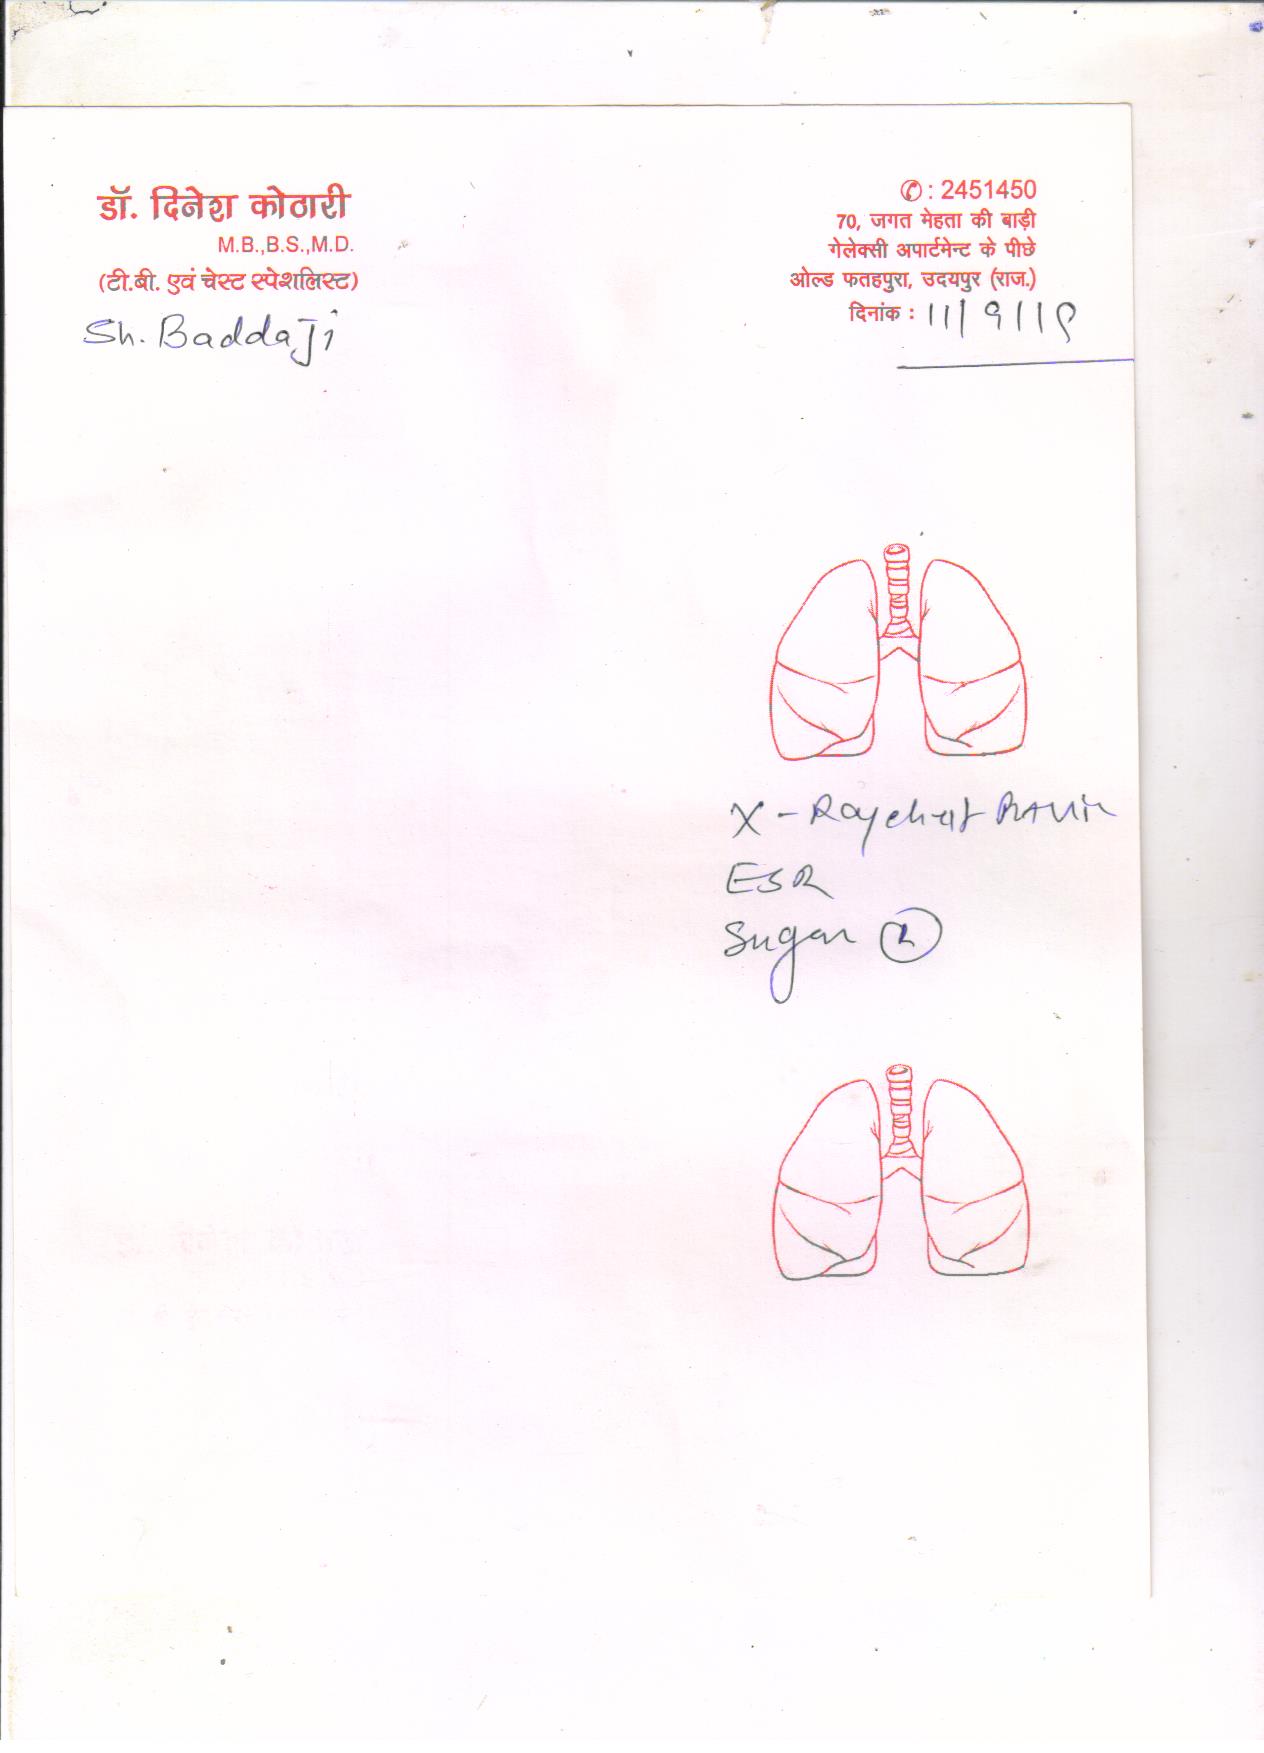 डॉ. दिनेश कोठारी
M.B.,B.S.,M.D.
(टी.बी. एवं चेस्ट स्पेशलिस्ट)
Sh. Baddaji
✆ : 2451450
70, जगत मेहता की बाड़ी
गेलेक्सी अपार्टमेन्ट के पीछे
ओल्ड फतहपुरा, उदयपुर (राज.)
दिनांक : 11/9/19
X-Ray chest
ESR
Sugar